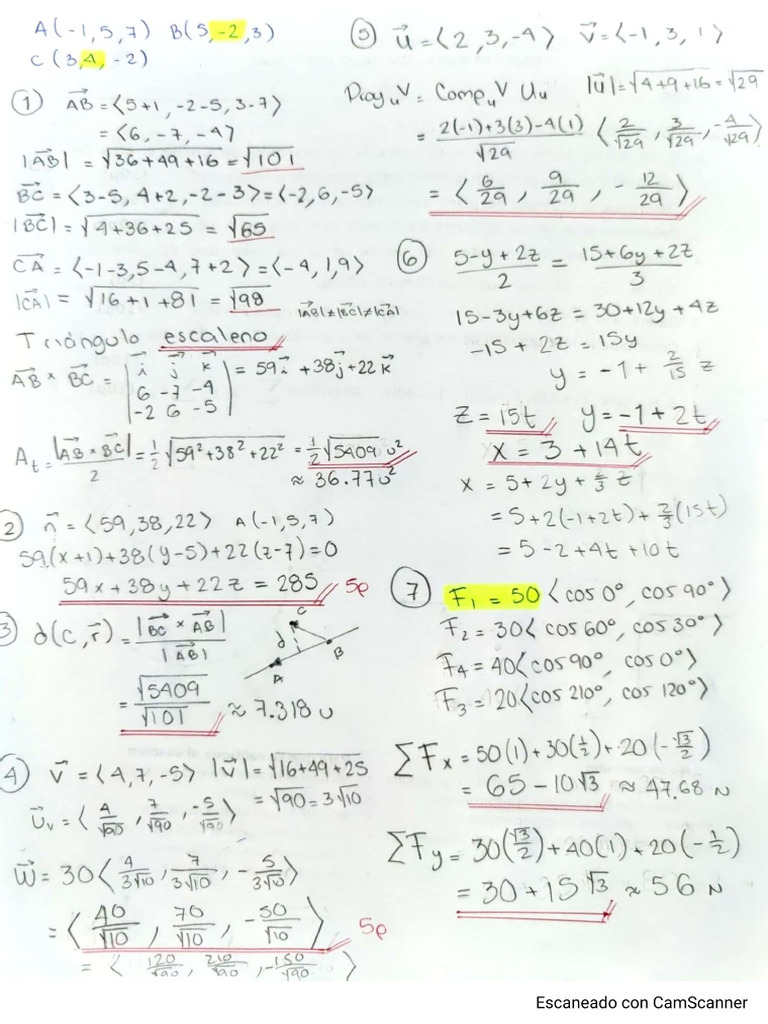 A(-1,5,7) B(5,-2,3)
C(3,4,-2)
① AB = ⟨5+1, -2-5, 3-7⟩
= ⟨6, -7, -4⟩
|AB| = √36+49+16 = √101
BC = ⟨3-5, 4+2, -2-3⟩ = ⟨-2,6,-5⟩
|BC| = √4+36+25 = √65
CA = ⟨-1-3,5-4,7+2⟩ = ⟨-4,1,9⟩
|CA| = √16+1+81 = √98 |AB|≠|BC|≠|CA|
Triángulo escaleno
AB × BC = | i j k | = 59i + 38j + 22k
6 -7 -4
-2 6 -5
At = |AB × BC| / 2 = 1/2 √59²+38²+22² = 1/2 √5409 u²
≈ 36.77u²
② n = ⟨59,38,22⟩ A(-1,5,7)
59(x+1)+38(y-5)+22(z-7)=0
59x+38y+22z = 285 5p
③ d(C,r) = |BC × AB| / |AB|
C
d
B
A
= √5409 / √101 ≈ 7.318 u
④ v = ⟨4,7,-5⟩ |v| = √16+49+25
= √90 = 3√10
Uv = ⟨4/√90, 7/√90, -5/√90⟩
w = 30⟨4/3√10, 7/3√10, -5/3√10⟩
= ⟨40/√10, 70/√10, -50/√10⟩ 5p
= ⟨120/√90, 210/√90, -150/√90⟩
⑤ u = ⟨2,3,-4⟩ v = ⟨-1,3,1⟩
Proyu v = Compu v Uu |u| = √4+9+16 = √29
= 2(-1)+3(3)-4(1) / √29 ⟨2/√29, 3/√29, -4/√29⟩
= ⟨6/29, 9/29, -12/29⟩
⑥ 5-y+2z / 2 = 15+6y+2z / 3
15-3y+6z = 30+12y+4z
-15+2z = 15y
y = -1 + 2/15 z
z = 15t y = -1+2t
x = 3+14t
x = 5+2y+2/3 z
= 5+2(-1+2t)+2/3(15t)
= 5-2+4t+10t
⑦ F1 = 50⟨cos 0°, cos 90°⟩
F2 = 30⟨cos 60°, cos 30°⟩
F4 = 40⟨cos 90°, cos 0°⟩
F3 = 20⟨cos 210°, cos 120°⟩
ΣFx = 50(1)+30(1/2)+20(-√3/2)
= 65-10√3 ≈ 47.68 N
ΣFy = 30(√3/2)+40(1)+20(-1/2)
= 30+15√3 ≈ 56 N
Escaneado con CamScanner